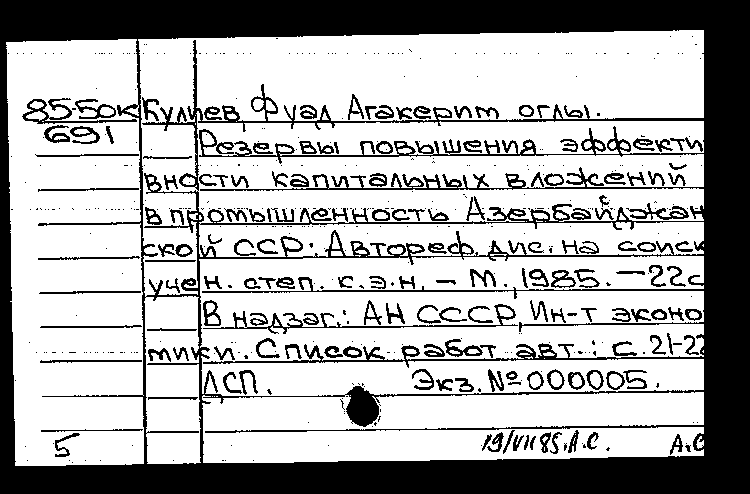 85-50к Кулиев, Фуад Агакерим оглы.
691 Резервы повышения эффекти
вности капитальных вложений
в промышленность Азербайджан
ской ССР: Автореф. дис. на соиск
учен. степ. к.э.н. – М., 1985. – 22с
В надзаг.: АН СССР, Ин-т эконо
мики. Список работ авт.: с. 21-22
ДСП. Экз. № 000005.
5 19/VII 85. А.С. А.С